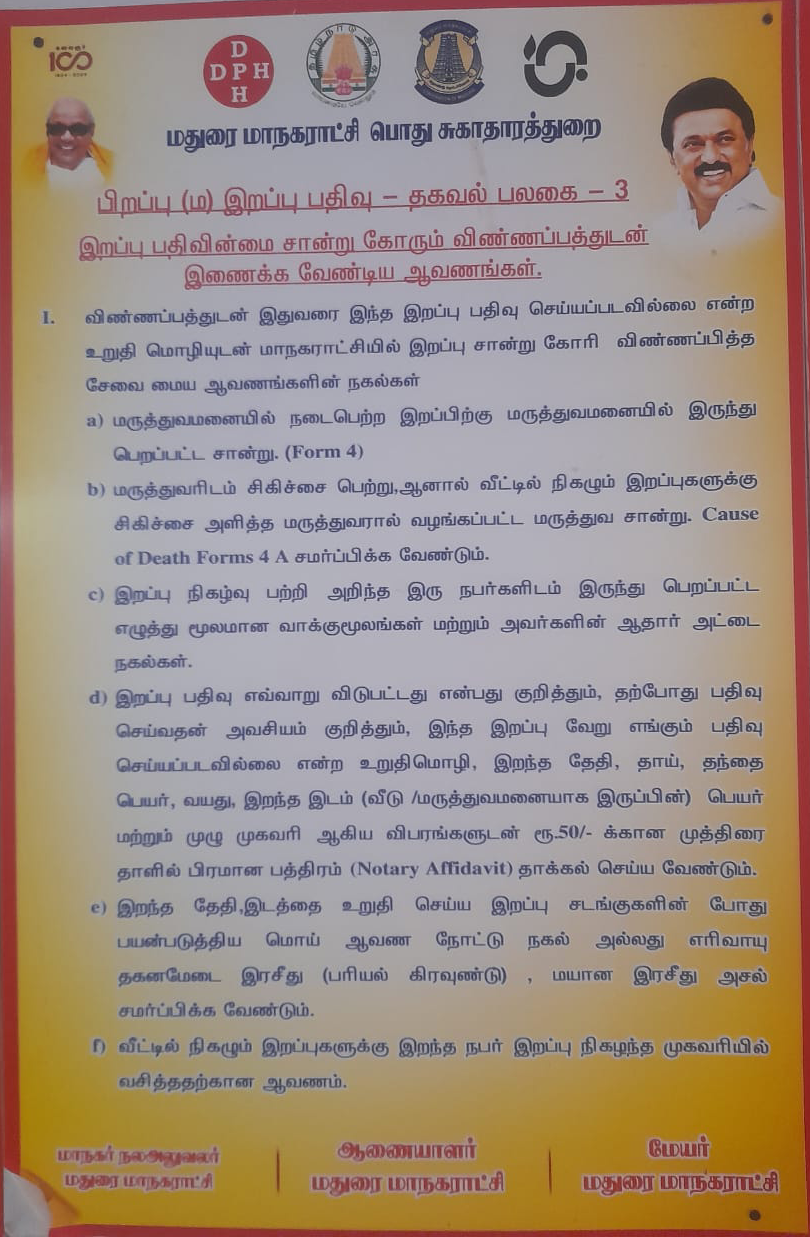 100
D
DPH
H
தமிழ்நாடு அரசு
வாய்மையே வெல்லும்
மதுரை மாநகராட்சி பொது சுகாதாரத்துறை
பிறப்பு (ம) இறப்பு பதிவு – தகவல் பலகை – 3
இறப்பு பதிவின்மை சான்று கோரும் விண்ணப்பத்துடன்
இணைக்க வேண்டிய ஆவணங்கள்.
1. விண்ணப்பத்துடன் இதுவரை இந்த இறப்பு பதிவு செய்யப்படவில்லை என்ற
உறுதி மொழியுடன் மாநகராட்சியில் இறப்பு சான்று கோரி விண்ணப்பித்த
சேவை மைய ஆவணங்களின் நகல்கள்
a) மருத்துவமனையில் நடைபெற்ற இறப்பிற்கு மருத்துவமனையில் இருந்து
பெறப்பட்ட சான்று. (Form 4)
b) மருத்துவரிடம் சிகிச்சை பெற்று,ஆனால் வீட்டில் நிகழும் இறப்புகளுக்கு
சிகிச்சை அளித்த மருத்துவரால் வழங்கப்பட்ட மருத்துவ சான்று. Cause
of Death Forms 4 A சமர்ப்பிக்க வேண்டும்.
c) இறப்பு நிகழ்வு பற்றி அறிந்த இரு நபர்களிடம் இருந்து பெறப்பட்ட
எழுத்து மூலமான வாக்குமூலங்கள் மற்றும் அவர்களின் ஆதார் அட்டை
நகல்கள்.
d) இறப்பு பதிவு எவ்வாறு விடுபட்டது என்பது குறித்தும், தற்போது பதிவு
செய்வதன் அவசியம் குறித்தும், இந்த இறப்பு வேறு எங்கும் பதிவு
செய்யப்படவில்லை என்ற உறுதிமொழி, இறந்த தேதி, தாய், தந்தை
பெயர், வயது, இறந்த இடம் (வீடு /மருத்துவமனையாக இருப்பின்) பெயர்
மற்றும் முழு முகவரி ஆகிய விபரங்களுடன் ரூ.50/- க்கான முத்திரை
தாளில் பிரமான பத்திரம் (Notary Affidavit) தாக்கல் செய்ய வேண்டும்.
e) இறந்த தேதி,இடத்தை உறுதி செய்ய இறப்பு சடங்குகளின் போது
பயன்படுத்திய மொய் ஆவண நோட்டு நகல் அல்லது எரிவாயு
தகனமேடை இரசீது (பரியல் கிரவுண்டு) , மயான இரசீது அசல்
சமர்ப்பிக்க வேண்டும்.
f) வீட்டில் நிகழும் இறப்புகளுக்கு இறந்த நபர் இறப்பு நிகழந்த முகவரியில்
வசித்ததற்கான ஆவணம்.
மாநகர் நலஅலுவலர் ஆணையாளர் மேயர்
மதுரை மாநகராட்சி மதுரை மாநகராட்சி மதுரை மாநகராட்சி